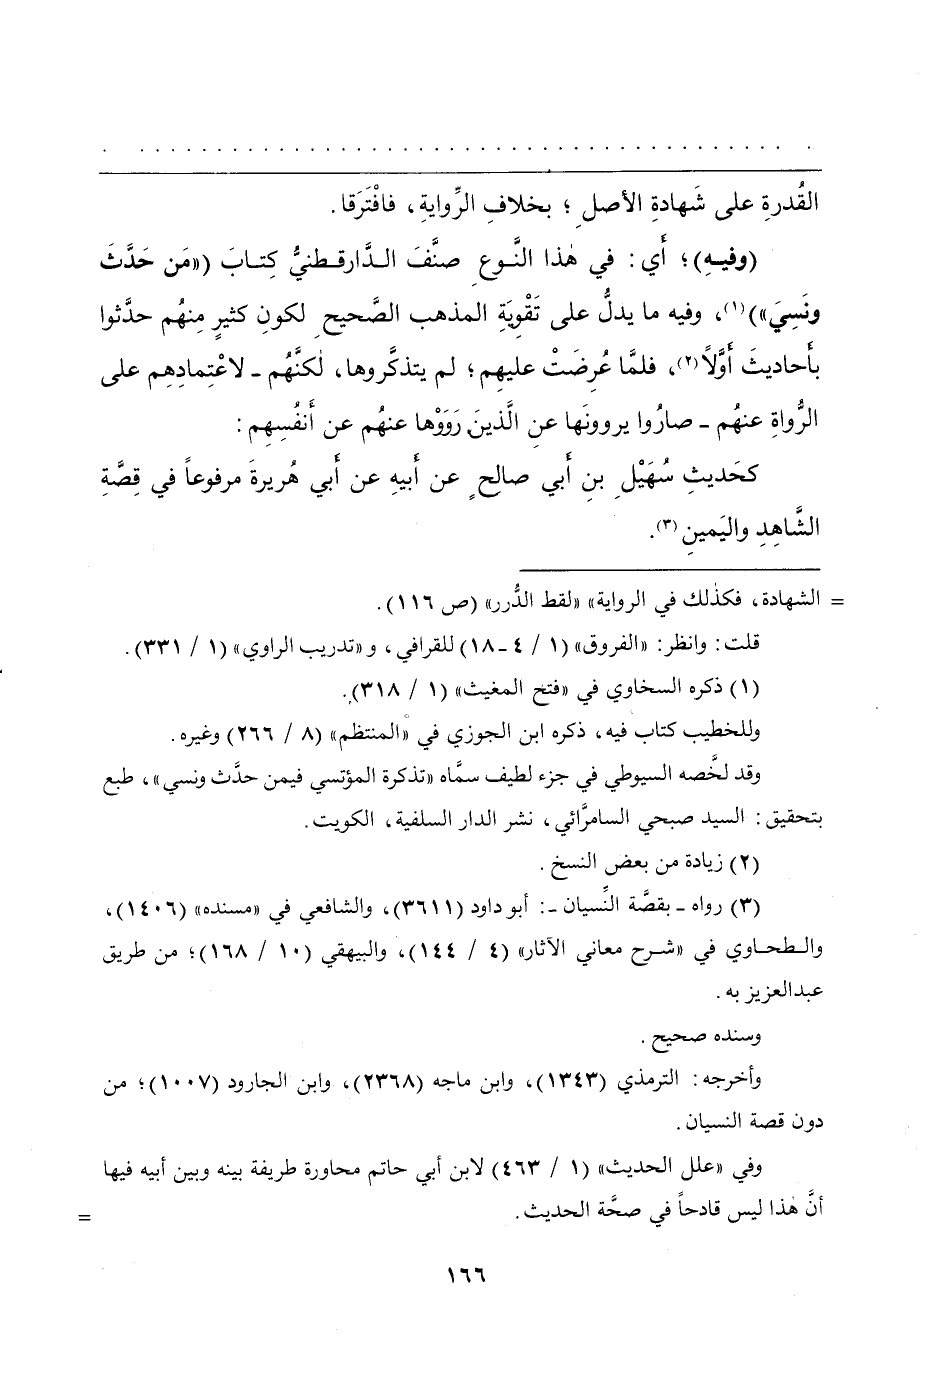 القُدرةِ على شَهادةِ الأصلِ ؛ بخلافِ الرِّوايةِ، فافْتَرَقا.
(وفيهِ)؛ أَي: في هٰذا النَّوعِ صنَّفَ الدَّارقطنيُّ كِتابَ («مَن حَدَّثَ
ونَسِيَ»)(١)، وفيه ما يدلُّ على تَقْوِيَةِ المذهب الصَّحيحِ لكونِ كثيرٍ مِنهُم حدَّثوا
بأَحاديثَ أَوَّلاً(٢)، فلمَّا عُرِضَتْ عليهِم؛ لم يتذكَّروها، لٰكنَّهُم ـ لاعْتِمادِهِم على
الرُّواةِ عنهُم ـ صارُوا يروونَها عنِ الَّذينَ رَوَوْها عنهُم عن أَنفُسِهِم:
كحَديثِ سُهَيْلِ بنِ أَبي صالحٍ عن أَبيهِ عن أَبي هُريرةَ مرفوعاً في قِصَّةِ
الشَّاهِدِ واليَمينِ(٣).
= الشهادة، فكذٰلك في الرواية» «لقط الدُّرر» (ص ١١٦).
قلت: وانظر: «الفروق» (١ / ٤ ـ ١٨) للقرافي، و «تدريب الراوي» (١ / ٣٣١).
(١) ذكره السخاوي في «فتح المغيث» (١ / ٣١٨).
وللخطيب كتاب فيه، ذكره ابن الجوزي في «المنتظم» (٨ / ٢٦٦) وغيره.
وقد لخَّصه السيوطي في جزء لطيف سمَّاه «تذكرة المؤتسي فيمن حدَّث ونسي»، طبع
بتحقيق: السيد صبحي السامرَّائي، نشر الدار السلفية، الكويت.
(٢) زيادة من بعض النسخ.
(٣) رواه ـ بقصَّة النِّسيان ـ: أبو داود (٣٦١١)، والشافعي في «مسنده» (١٤٠٦)،
والطحاوي في «شرح معاني الآثار» (٤ / ١٤٤)، والبيهقي (١٠ / ١٦٨)؛ من طريق
عبدالعزيز به.
وسنده صحيح.
وأخرجه: الترمذي (١٣٤٣)، وابن ماجه (٢٣٦٨)، وابن الجارود (١٠٠٧)؛ من
دون قصة النسيان.
وفي «علل الحديث» (١ / ٤٦٣) لابن أبي حاتم محاورة طريفة بينه وبين أبيه فيها
أنَّ هٰذا ليس قادحاً في صحَّة الحديث. =
١٦٦